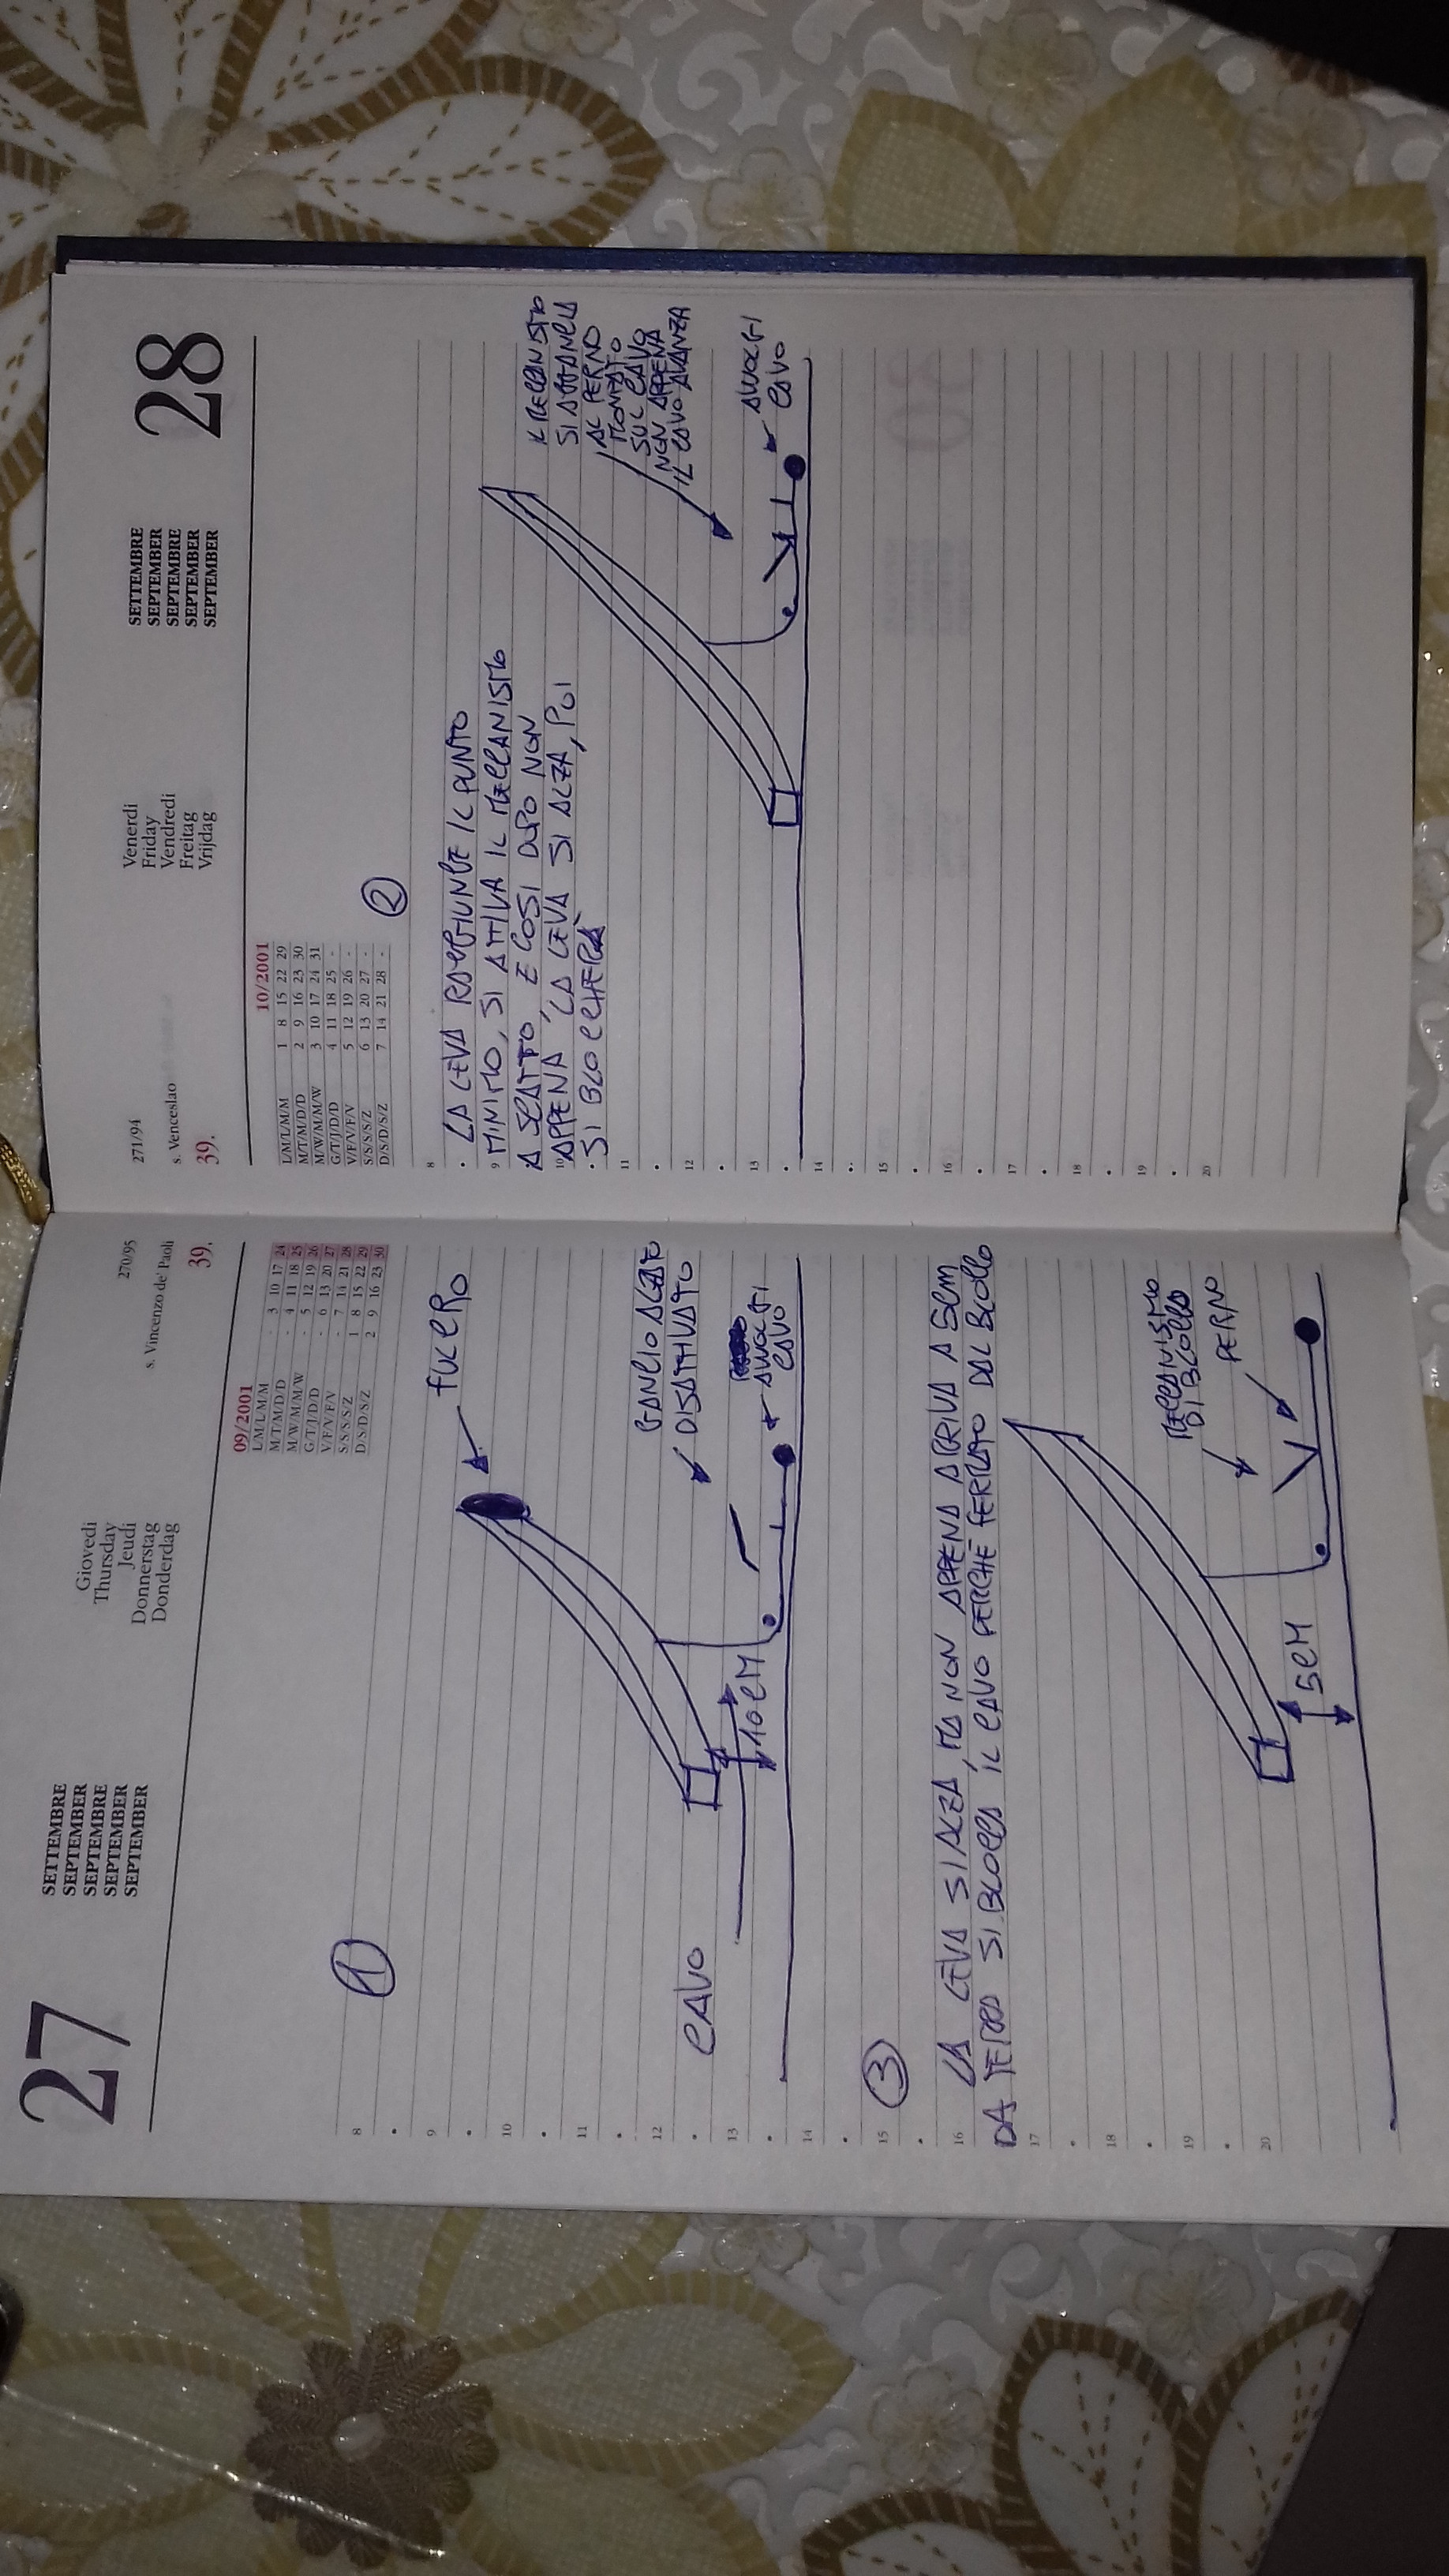 27
SETTEMBRE
SEPTEMBER
SEPTEMBRE
SEPTEMBER
SEPTEMBER
Giovedì
Thursday
Jeudi
Donnerstag
Donderdag
270/95
s. Vincenzo de' Paoli
39.
09/2001
L/M/L/M/M - 3 10 17 24
M/T/M/D/D - 4 11 18 25
M/W/M/M/W - 5 12 19 26
G/T/J/D/D - 6 13 20 27
V/F/V/F/V - 7 14 21 28
S/S/S/S/Z 1 8 15 22 29
D/S/D/S/Z 2 9 16 23 30
1
FULCRO
GANCIO ALZATO
DISATTIVATO
AVVOLGI
CAVO
10 CM
CAVO
3
LA LEVA SI ALZA, MA NON APPENA ARRIVA A 5CM
DA TERRA SI BLOCCA IL CAVO PERCHÈ FERMATO DAL BLOCCO
MECCANISMO
DI BLOCCO
PERNO
5CM
8
9
10
11
12
13
14
15
16
17
18
19
20
271/94
s. Venceslao
39.
Venerdì
Friday
Vendredi
Freitag
Vrijdag
SETTEMBRE
SEPTEMBER
SEPTEMBRE
SEPTEMBER
SEPTEMBER
28
10/2001
L/M/L/M/M 1 8 15 22 29
M/T/M/D/D 2 9 16 23 30
M/W/M/M/W 3 10 17 24 31
G/T/J/D/D 4 11 18 25 -
V/F/V/F/V 5 12 19 26 -
S/S/S/S/Z 6 13 20 27 -
D/S/D/S/Z 7 14 21 28 -
2
LA LEVA RAGGIUNGE IL PUNTO
MINIMO, SI ATTIVA IL MECCANISMO
A SCATTO, E COSI DOPO NON
APPENA, LA LEVA SI ALZA, POI
SI BLOCCHERÀ
IL MECCANISMO
SI AGGANCIA
AL PERNO
MONTATO
SUL CAVO
NON APPENA
IL CAVO AVANZA
AVVOLGI
CAVO
8
9
10
11
12
13
14
15
16
17
18
19
20